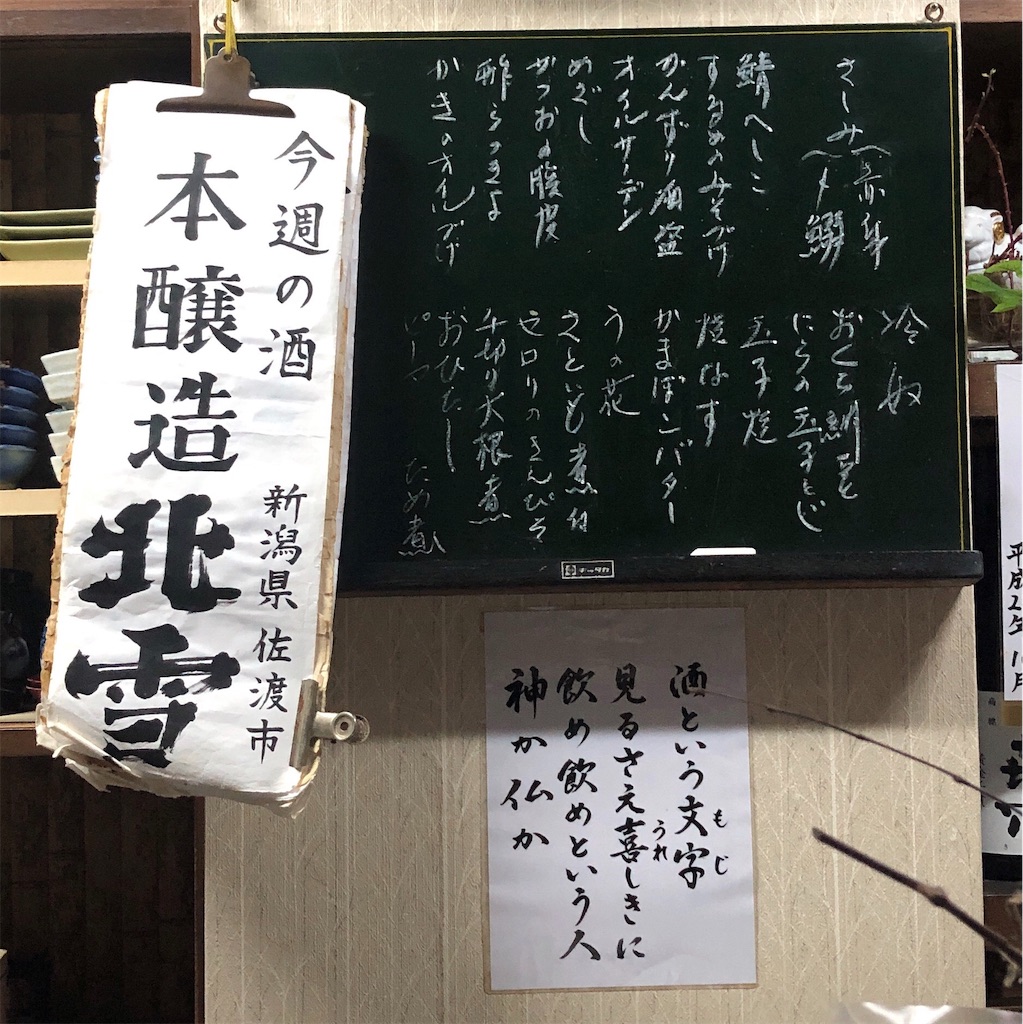 今週の酒
新潟県 佐渡市
本醸造北雪
さしみ
赤身
〆鰯
鯖へしこ
するめのみそづけ
かんずり酒盗
オイルサーデン
めざし
かつおの腹皮
酢らっきょ
かきのオイルづけ
冷奴
おくら納豆
にらの玉子とじ
玉子焼
焼なす
かまぼこバター
うの花
さといも煮付
セロリのきんぴら
千切り大根煮
おひたし
ピーマン ため煮
酒という文字
もじ
見るさえ喜しきに
うれ
飲め飲めという人
神か仏か